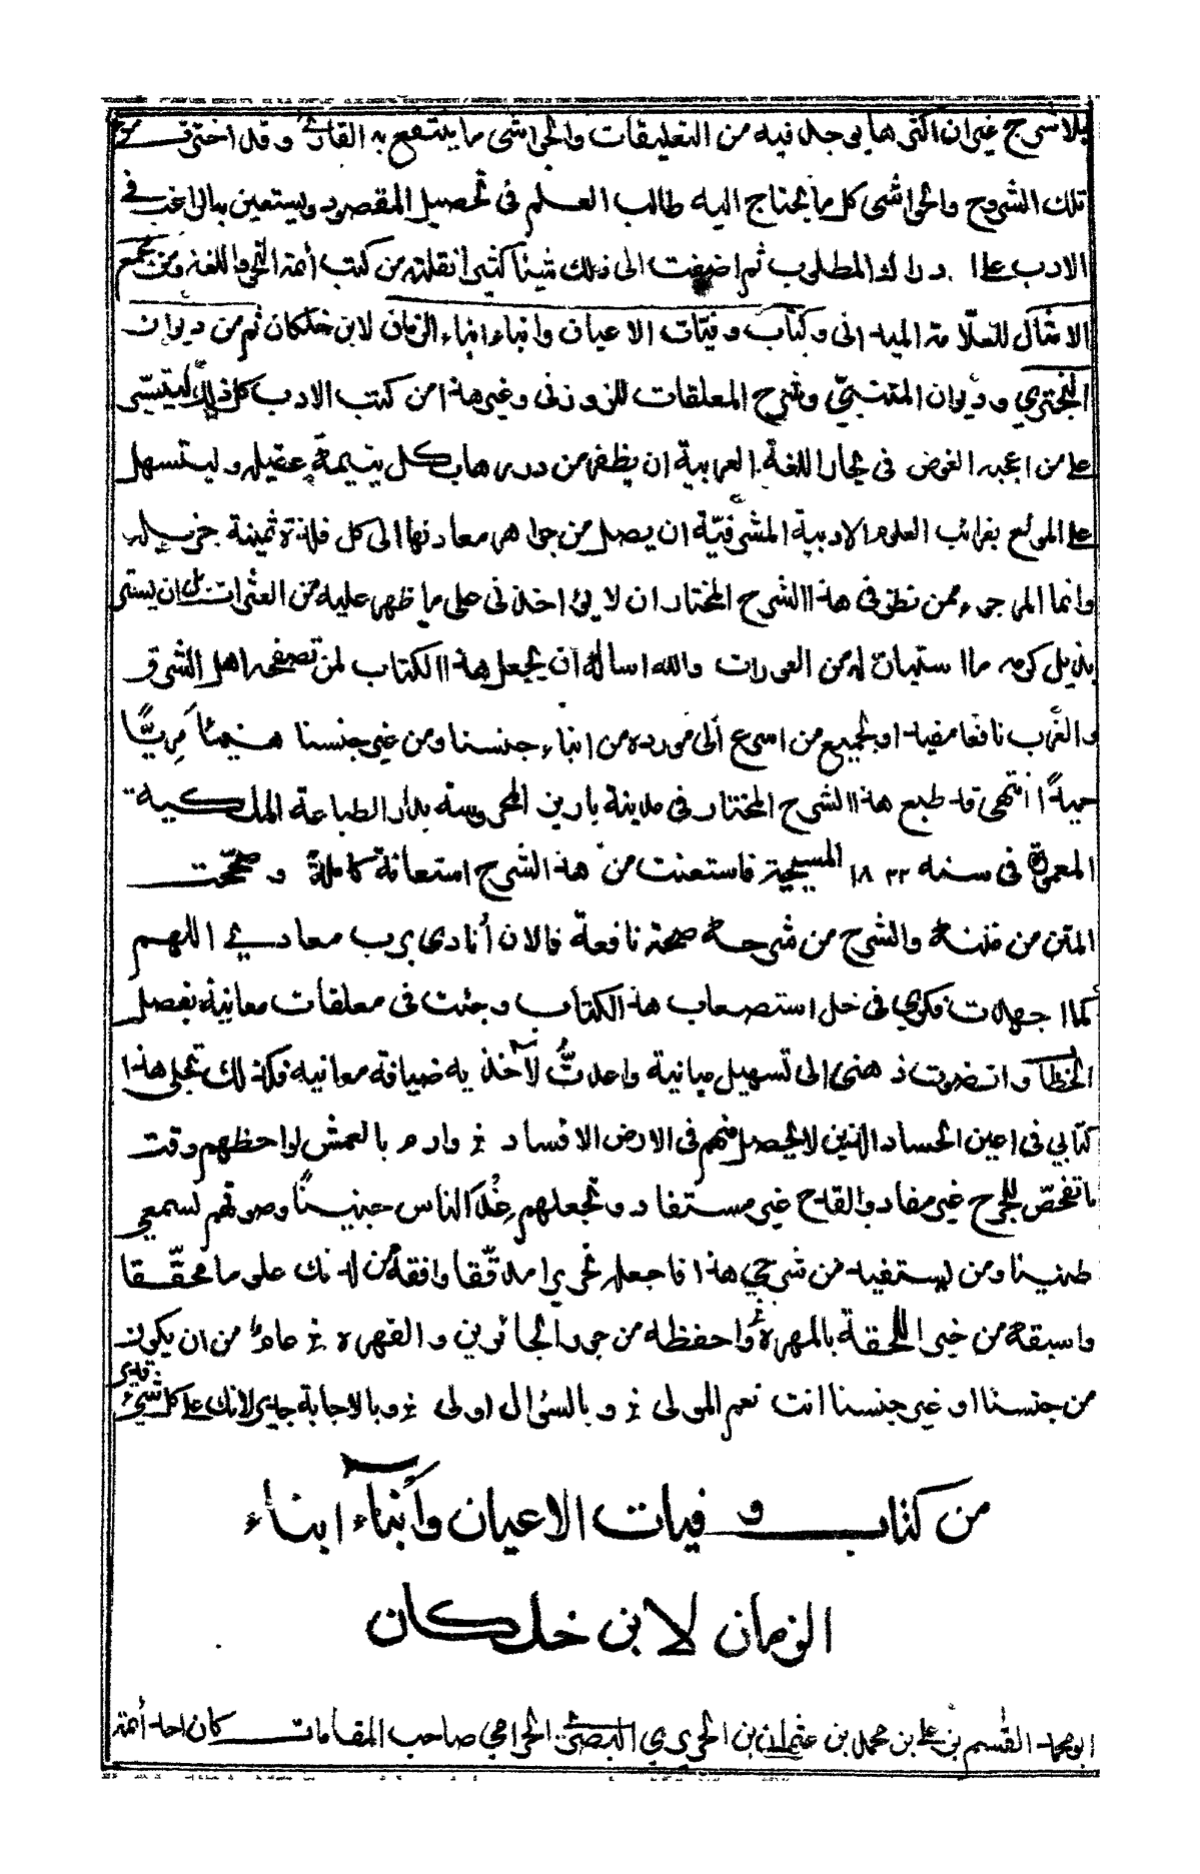 بلا سرج غير ان اكثرها يوجد فيه من التعليقات والحواشى ما ينتفع به القارئ وقد اخترت من
تلك الشروح والحواشى كل ما يحتاج اليه طالب العلم فى تحصيل المقصود ويستعين به الراغب فى
الادب على ادراك المطلوب ثم اضيفت الى ذلك شيئا كثيرا نقلته من كتب أئمة النحو واللغة ومن مجمع
الامثال للعلّامة الميدانى وكتاب وفيّات الاعيان وانباء ابناء الزمان لابن خلكان ثم من ديوان
البحتري وديوان المتنبّي وشرح المعلقات للزوزنى وغيرها من كتب الادب كل ذلك ليتيسّر
على من اعجبه الغوض فى بحار اللغة العربية ان يظفر من دررها بكل يتيمة عقيله وليتسهل
على المولع بغرائب العلوم الادبية المشرفيّة ان يصل من جواهر معادنها الى كل فلذة ثمينة جزيله
وانما المرجوء ممن نظر فى هذا الشرح المختار ان لا يؤاخذنى على ما ظهر عليه من العثرات بل ان يستر
بذيل كرمه ما استبان له من العورات والله اساله ان يجعل هذا الكتاب لمن تصفحه اهل الشرق
والغرب نافعا مفيدا ولجميع من اسرع الى مورده من ابناء جنسنا ومن غير جنسنا هنيئا مريًّا
حميدًا انتهى قد طبع هذا الشرح المختار فى مدينة بارين المحروسة بدار الطباعة الملكية
المعمورة فى سنه ١٨٢٢ المسيحية فاستعنت من هذا الشرح استعانة كاملة و صححت
المتن من متنه والشرح من شرحه صحة نافعة فالان أنادى برب معادي اللهم
كما اجهدت فكري فى حل استصعاب هذا الكتاب وجئت فى معلقات معانيه بفصل
الخطآ وانضرت ذهنى الى تسهيل مبانية واعددتُّ لآخذيه ضيافة معانيه فكذلك تجلى هذا
كتابي فى اعين الحساد الذين لا يحصل منهم فى الارض الا فساد وارم بالعمش لواحظهم وقت
ما تفحّص للجرح غير مفاد والقدح غير مستفاد وتجعلهم عند الناس جنينًا وصوتهم لسمعي
طنينا ومن يستفيد من شرحي هذا فاجعله نحريرا مدقّقا وافقه من لدنك علوما محقّقا
واسبقه من خير اللحقة بالمهرة واحفظه من جور الجائرين والقهرة عامّا من ان يكون
من جنسنا او غير جنسنا انت نعم المولى وبالسؤال اولى وبالاجابة جدير لانك على كل شيئ قدير
من كتاب وفيات الاعيان وأنباء ابناء
الزمان لابن خلكان
ابو محمد القٰسم بن على بن محمد بن عثمان بن الحريري البصرى الحرامي صاحب المقامات كان احد أئمة